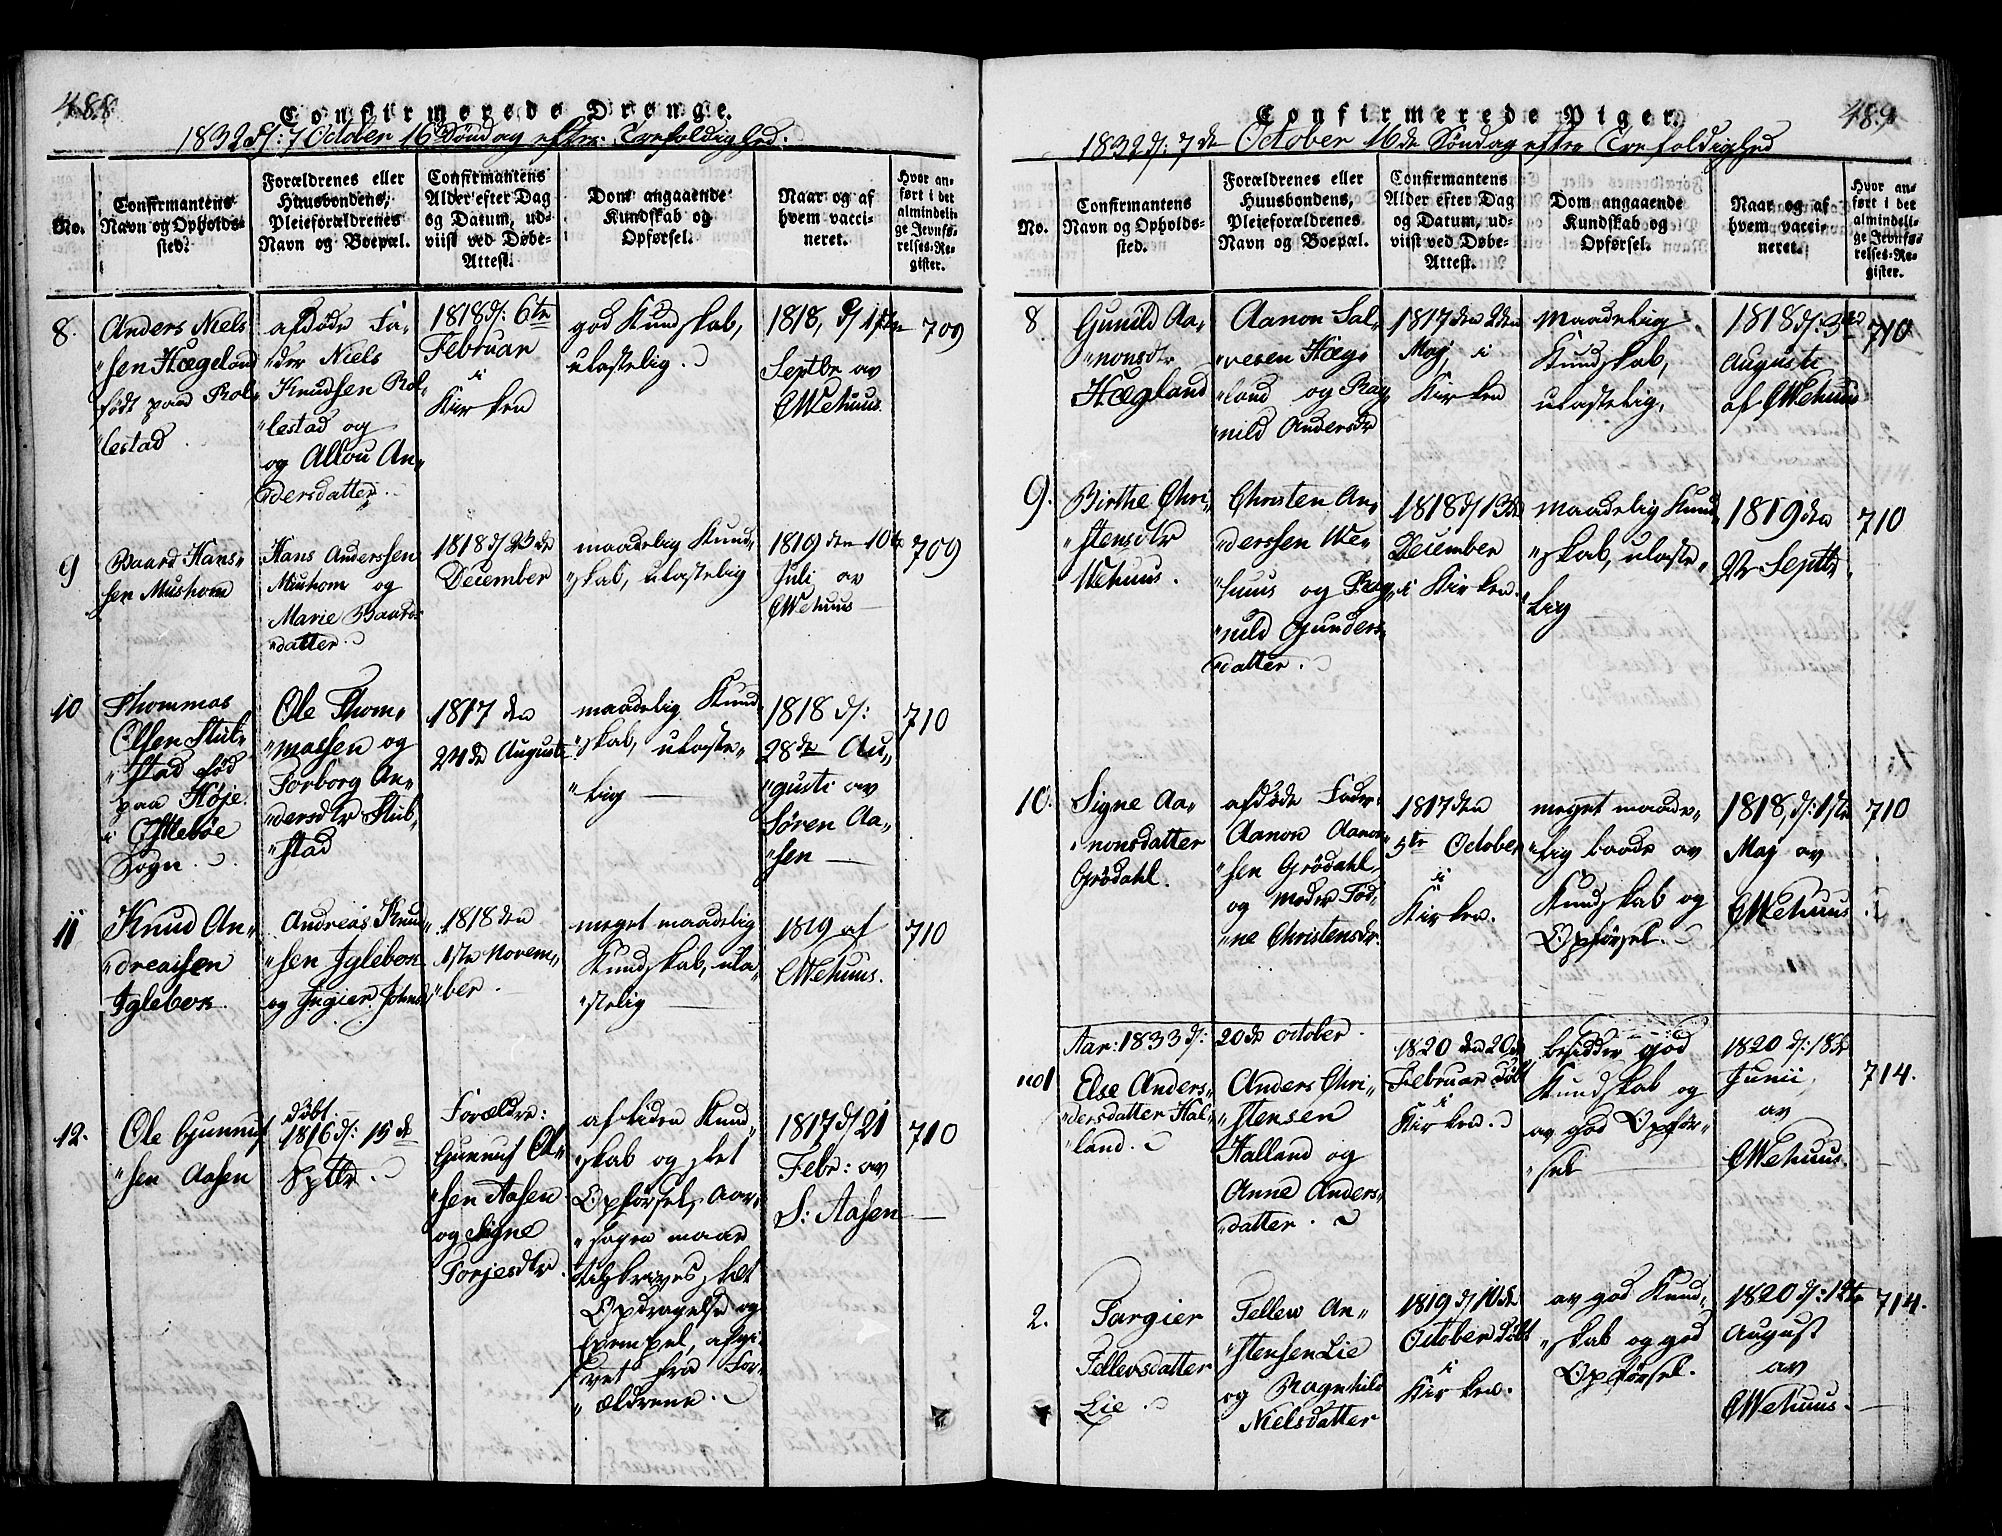 488
Confirmerede Drenge.
1832 d: 7 October 16 Søndag efter Trefoldighed:
No.
Confirmantens
Navn og Opholds-
sted.
Forældrenes eller
Huusbondens,
Pleieforældrenes
Navn og Boepæl.
Confirmantens
Alder efter Dag
og Datum, ud-
viist ved Døbe-
Attest.
Dom angaaende
Kundskab og
Opførsel.
Naar og af
hvem vacci-
neret.
Hvor an-
ført i det
almindeli-
ge Jevnfø-
relses-Re-
gister.
8.
Anders Niels
"sen Hægeland
født paa Rol-
"lestad
afdøde Fa-
"der Niels
Knudsen Rol-
"lestad og
og Allou An-
"dersdatter.
1818 d: 6te
Februar
i
Kirken
god Kundskab,
ulastelig.
1818, d
Septbr av
CWehuus.
709
9
Baard Hans-
sen Mushom
Hans Anderssen
Mushom og
Marie Baards
"datter.
1818 d 23de
December
maadelig Kund-
"skab, ulastelig
1819 den 10te
Juli av
CWehuus
709
10
Thommas
Olsen Stub-
"stad fød
paa Høje
i
Sogn.
Ole Thom-
"massen og
Torborg An-
"dersdtr Stub-
"stad
1817 den
24de Augusti
maadelig Kund-
"skab, ulaste-
"lig
1818 d:
28de Au-
"gusti av
Søren Aa-
"sen
710
11
Knud An-
"dreassen
Iglebek
Andreas Knud-
"sen Iglebek
og Ingier Johns
1818 den
1ste Novem-
"ber.
meget maadelig
Kundskab, ula-
"stelig
1819 af
CWehuus.
710
12.
Ole Gunnuf
"sen Aasen
døbt.
1816 d: 15de
Sptbr.
Forældre:
Gunnuf Ol-
"sen Aasen
og Signe
Torjesdtr.
af liden Kund-
"skab og slet
Opførsel, Aar-
"sagen maae
tilskrives slet
Opdragelse og
Exempel, afgi-
"vet fra For-
"ældrene.
1817 d 21
Febr: av
S: Aasen
710
489
Confirmerede Piger.
1832 d: 7de October 16de Søndag efter Trefoldighed
No.
Confirmantens
Navn og Opholds-
sted.
Forældrenes eller
Huusbondens,
Pleieforældrenes
Navn og Boepæl.
Confirmantens
Alder efter Dag
og Datum, ud-
viist ved Døbe-
Attest.
Dom angaaende
Kundskab og
Opførsel.
Naar og af
hvem vacci-
neret.
Hvor an-
ført i det
almindeli-
ge Jevnfø-
relses-Re-
gister.
8
Gunild Aa-
"nonsdtr
Hægland
Aanon Sal-
"vesen Hæg-
"land og Rag-
"nild Andersdr
1817 den 2den
Maj, i
Kirken
maadelig
Kundskab,
ulastelig.
1818 d:
Augusti
af CWehuus
710
9.
Birthe Chri-
"stensdtr
Wehuus.
Christen An-
"derssen We-
"huus og Rag-
"nild Gunders-
"datter.
1818 d 13de
December
i Kirken.
maadelig Kund-
"skab, ulaste-
"lig
1819 den
Septbr.
710
10.
Signe Aa-
"nonsdatter
Grödahl.
afdøde Fader
Aanon Aanon-
"sen Grödahl,
og Moder Tod-
"ne Christensdr.
1817 den
5te October
i
Kirken.
meget maade-
"lig baade av
Kundskab og
Opførsel.
1818, d: 1ste
Maj av
CWehuus.
710
Aar: 1833 d: 20de october.
no 1
Else Anders-
"dersdatter Hal-
"land.
Anders Chri-
"stensen
Halland og
Anne Anders-
"datter.
1820 den 20de
Februar døbt
i
Kirken.
besidder god
Kundskab og
av god Opfør-
"sel
1820 d: 18de
Junii,
av
CWehuus.
714.
2.
Targier
Tellevsdatter
Lie.
Tellev An-
"stensen Lie
og Ragnhild
Nielsdatter
1819 d 10de
October døbt
i
Kirken.
av god Kund-
"skab og god
Opførsel.
1820 d:
August
av
CWehuus.
714.